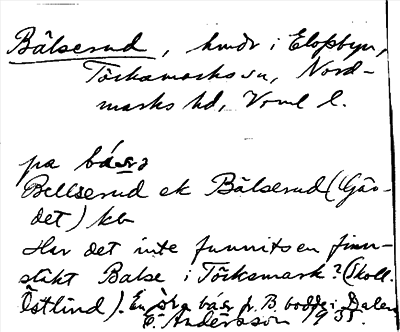 Bälserud, hmdr i Elofsbyn,
Töcksmarks sn, Nord-
marks hd, Vrml l.
pa
Bellserud ek Bälserud (Gär-
det) kb
Har det inte funnits en finn-
släkt Balse i Töcksmark? (Skoll.
Östlind). En bås fr. B. bodde i Dalen
E. Andersson 1935.